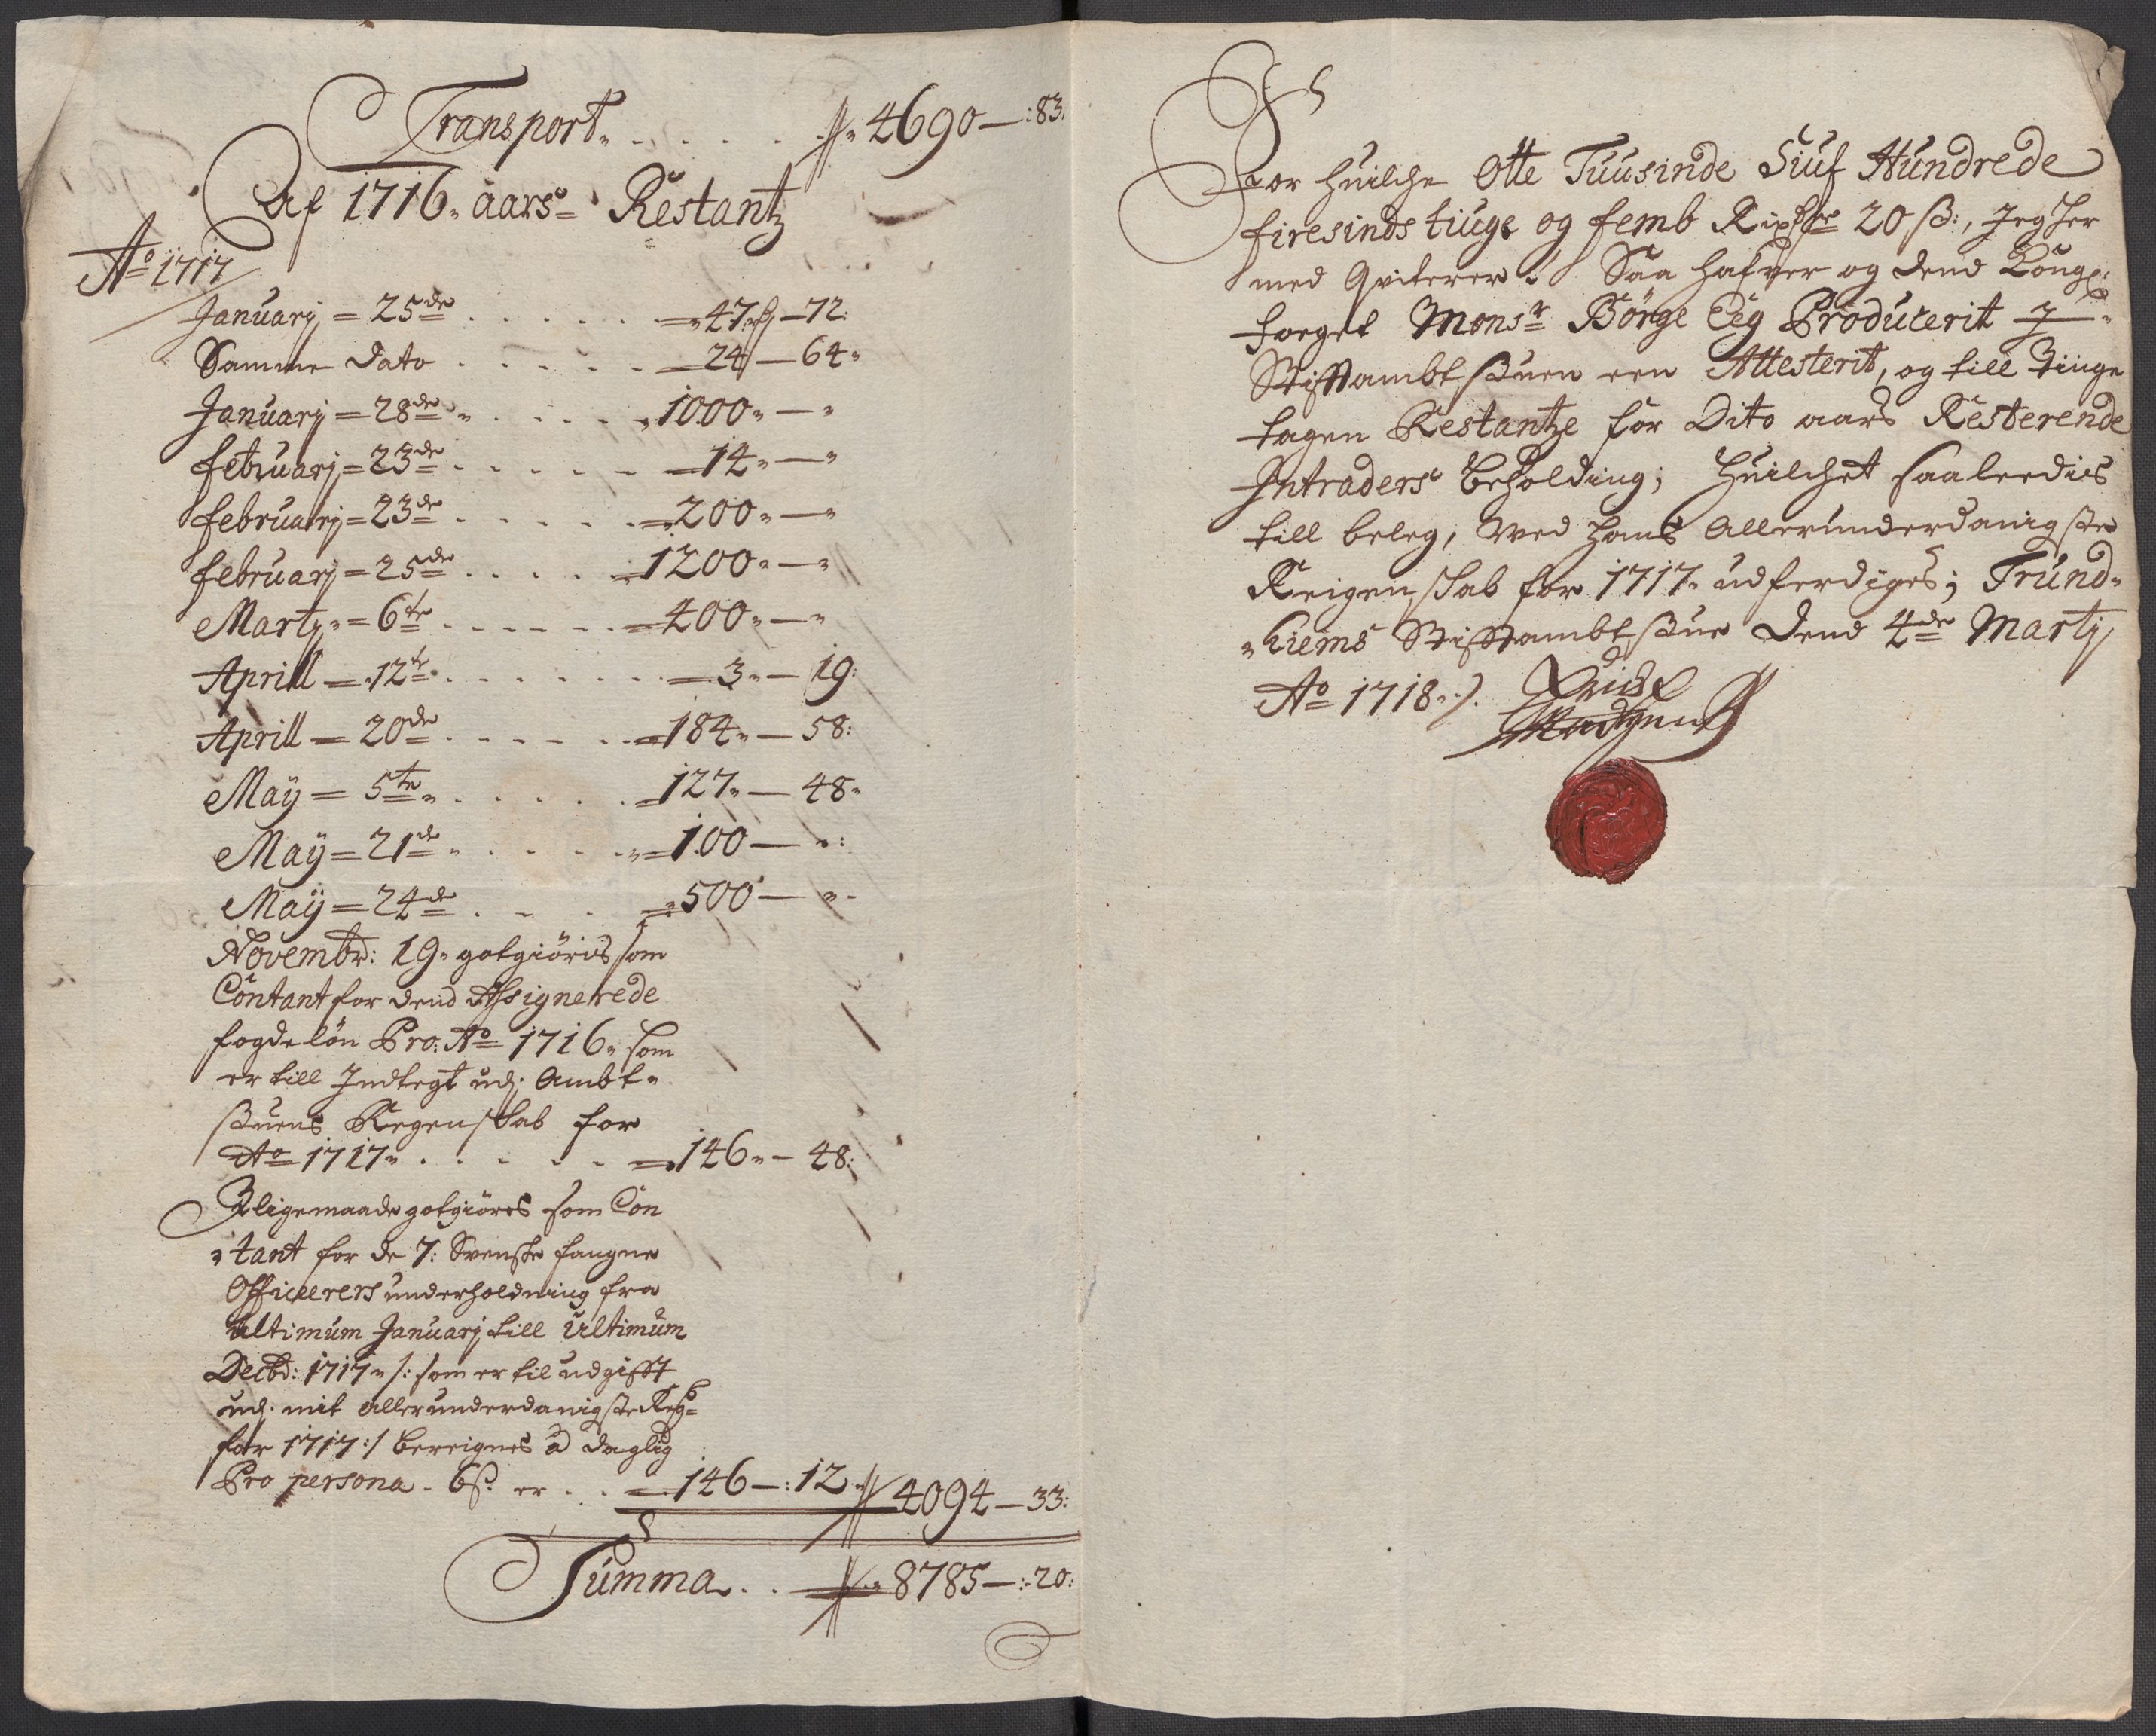 Transport. . . . . . 4690 — :83.
Af 1716. aars Restantz
Ao 1717
Januarij = 25de . . . . . = 47 — 72:
Samme dato . . . . . = 24 — 64.
Januarij = 28de . . . . . 1000. — "
Februarij = 23de . . . . . = 14. — "
Februarij = 23de . . . . . = 200. — "
Februarj = 25de . . . . . 1200. — "
Martij = 6te . . . . . = 400. — "
Aprill = 12te . . . . . = 3. — 19:
Aprill = 20de . . . . . = 184. — 58:
Maÿ = 5te . . . . . = 127. — 48.
Maÿ = 21de . . . . . = 100 — ":
Maÿ = 24de . . . = 500 — "
Novembr: 19. gotgiöris som
Contant for dend Assignerede
fogde lön Pro: Ao 1716. som
er till Indtegt udj Ambt-
stuens Regenskab for
Ao 1717. . . . . = 146. — 48:
Ligemaade gotgiöres som Con
"tant for de 7: Svenske fangne
Officerers underholdning fra
Ultimum Januarj till Ultimum
Decbr: 1717. /: som er til udgifft
udj mit allerunderdanigste Reg
for 1717 :/ bereignes â daglig
Pro persona . 6 s. er . . = 146 — :12 4094 — 33:
Summa . . 8785 — :20:
For huilche Otte Tuusinde Siuf Hundrede
firesinds tiuge og femb Rixdlr 20 ß:, Jeg her
med Qviterer. Saa hafver og dend Kongl:
foeget Monsr Börge Eeg Producerit J
Stiftambtstuen een Attesterit, og till Tinge
tagen Restantze for Dito aars Resterende
Intraders beholding; huilchet saaleedis
till beleg, ved hans Allerunderdanigste
Reigenskab for 1717. udferdiges; Trund-
"hiems Stiftambtstue dend 4de Martij
Ao 1718.